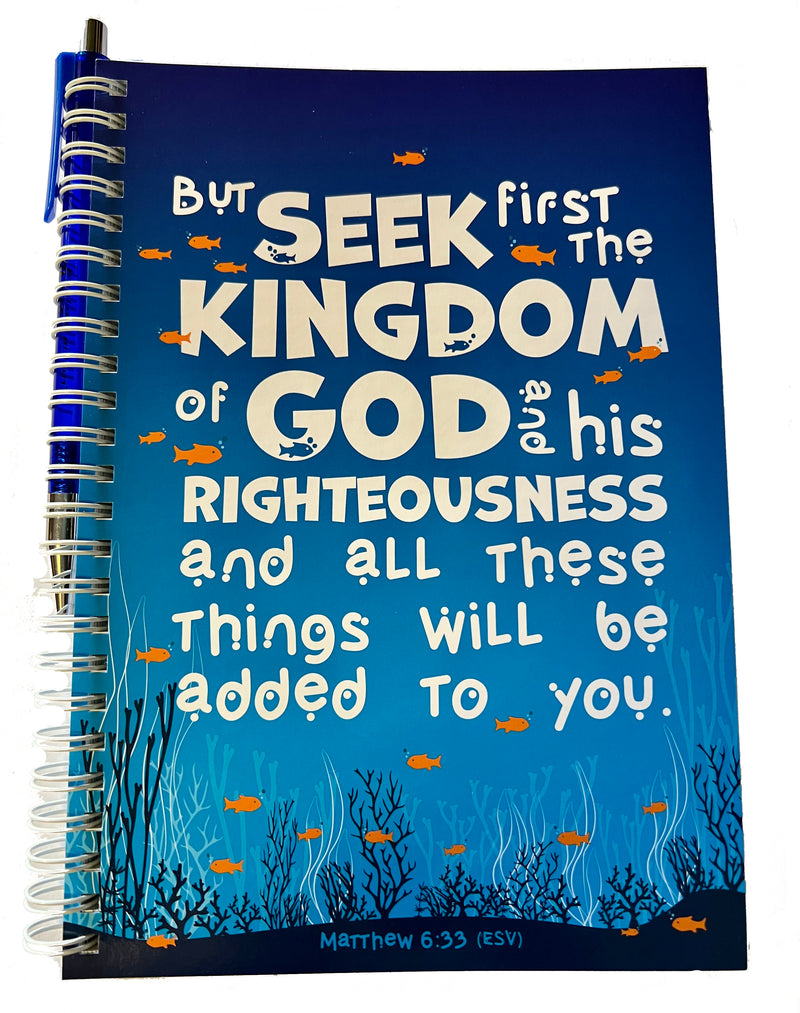 But SEEK first
the
KINGDOM
of GOD and his
RIGHTEOUSNESS
and all these
things will be
added to you.
Matthew 6:33 (ESV)